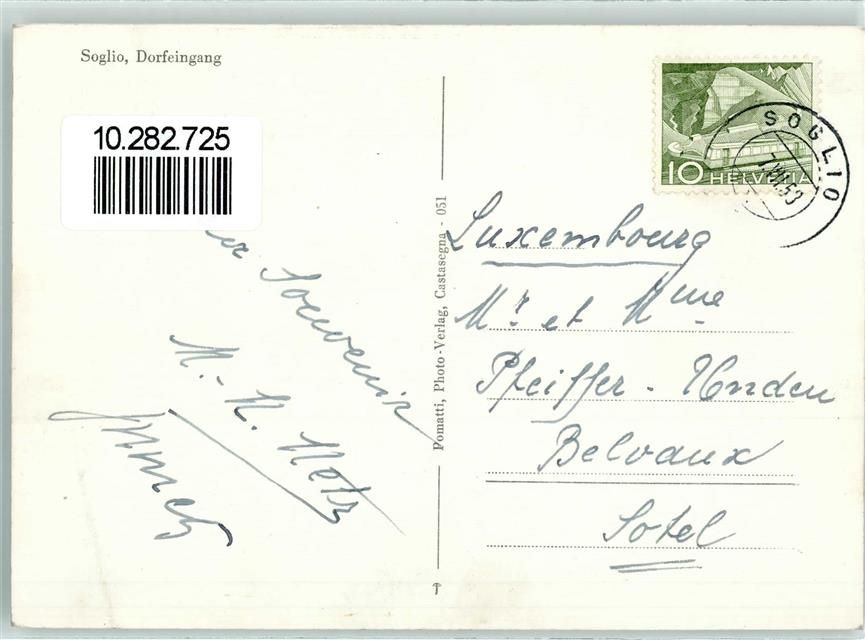 Soglio, Dorfeingang
10.282.725
Souvenir
M. - N. Metz
Pomatti, Photo-Verlag, Castasegna - 051
10 HELVETIA
SOGLIO
53
Luxembourg
Mr et Mme
Pfeiffer - Unden
Belvaux
Sotel